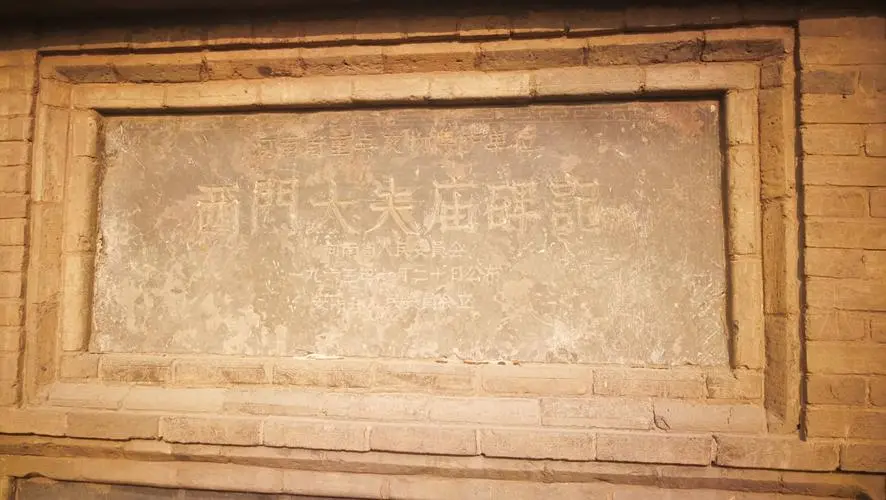 河南省重点文物保护单位
西門大夫庙碑記
河南省人民委員会
一九六三年六月二十日公布
安阳县人民委員会立